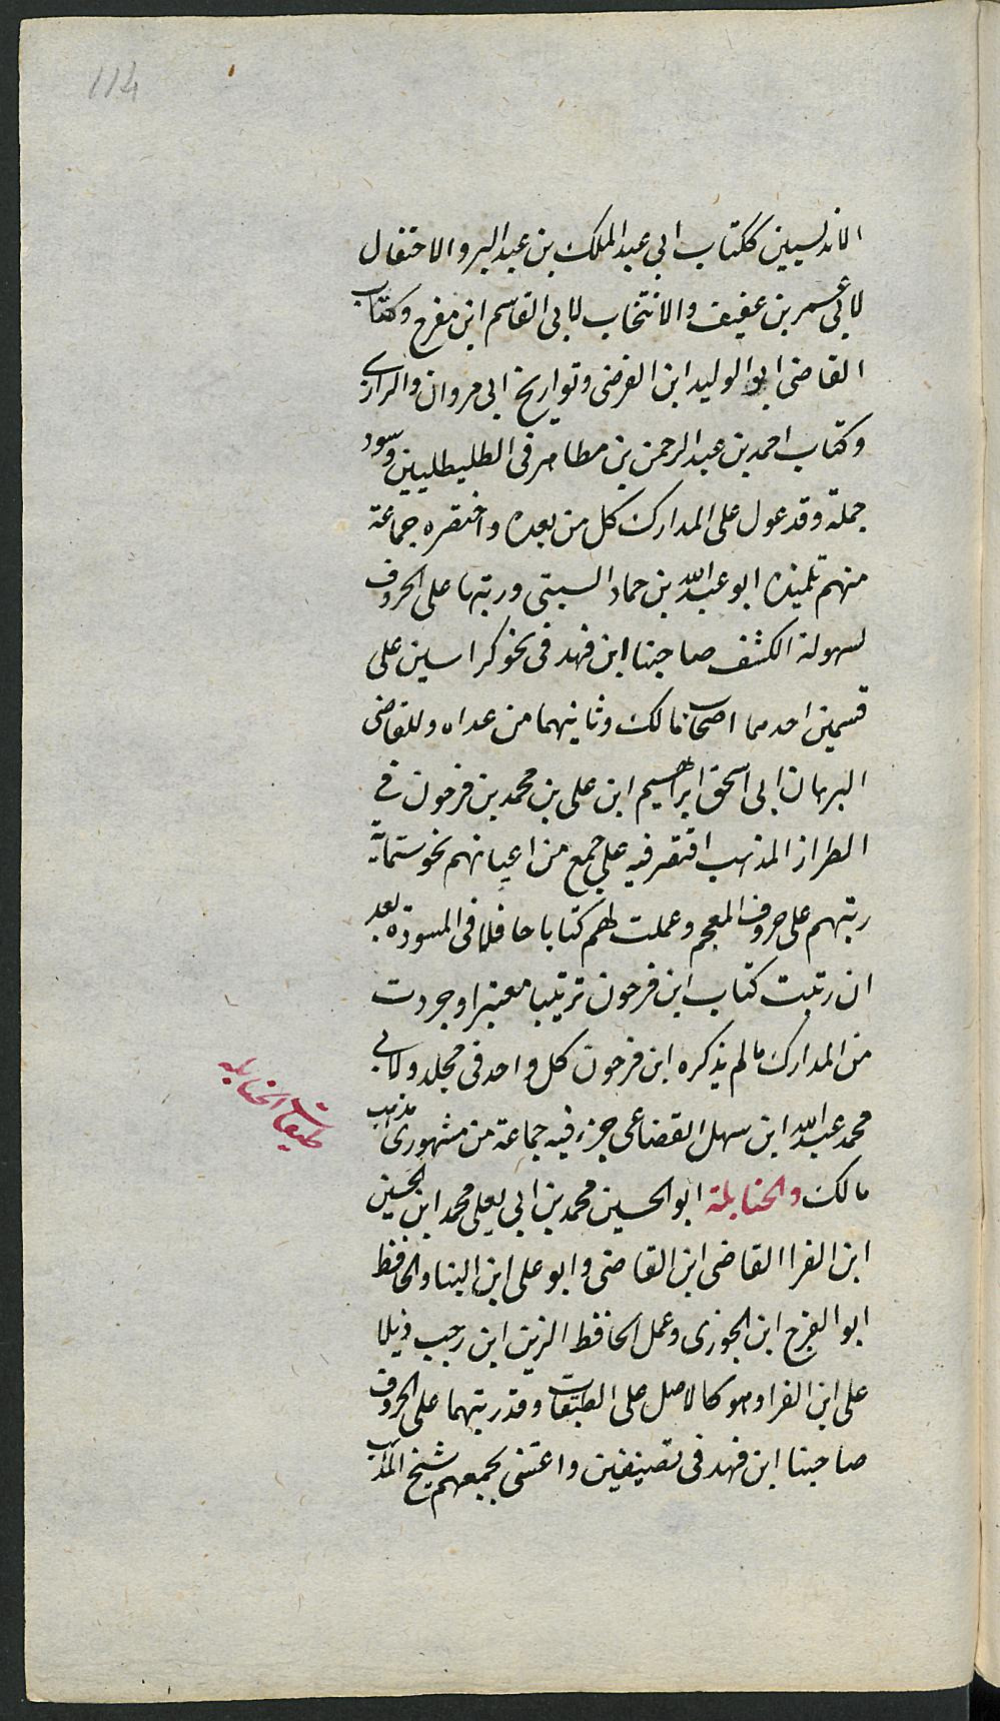 114
الاندلسيين ككتاب ابى عبد الملك بن عبد البر والاحتفال
لابى عمر بن عفيف والانتخاب لابى القاسم ابن مفرح وكتاب
القاضى ابو الوليد ابن الفرضى وتواريخ ابى مروان والرازى
وكتاب احمد بن عبد الرحمن بن مطاهر فى الطليطليين وسود
جملة وقد عول على المدارك كل من بعده واختصره جماعة
منهم تلميذه ابو عبد الله بن حماد السبتى ورتبها على الحروف
لسهولة الكشف صاحبنا ابن فهد فى نحو كراسين على
قسمين احدهما اصحاب مالك وثانيهما من عداه وللقاضى
البرهان ابى اسحق ابراهيم ابن على بن محمد بن فرحون فى
الطراز المذهب اقتصر فيه على جمع من اعيانهم نحو ستمائة
رتبهم على حروف المعجم وعملت لهم كتابا حافلا فى المسودة بعد
ان رتبت كتاب ابن فرحون ترتيبا معتبرا وجردت
من المدارك ما لم يذكره ابن فرحون كل واحد فى مجلد ولابى
محمد عبد الله ابن سهل القضاعى جزء فيه جماعة من مشهورى مذهب
مالك والحنابلة ابو الحسين محمد بن ابى يعلى محمد ابن الحسين
ابن الفرا القاضى ابن القاضى وابو على ابن البنا والحافظ
ابو الفرج ابن الجوزى وعمل الحافظ الزين ابن رجب ذيلا
على ابن الفرا وهو كالاصل على الطبقات وقد رتبهما على الحروف
صاحبنا ابن فهد فى تصنيفين واعتنى بجمعهم شيخ المذهب
طبقات الحنابله